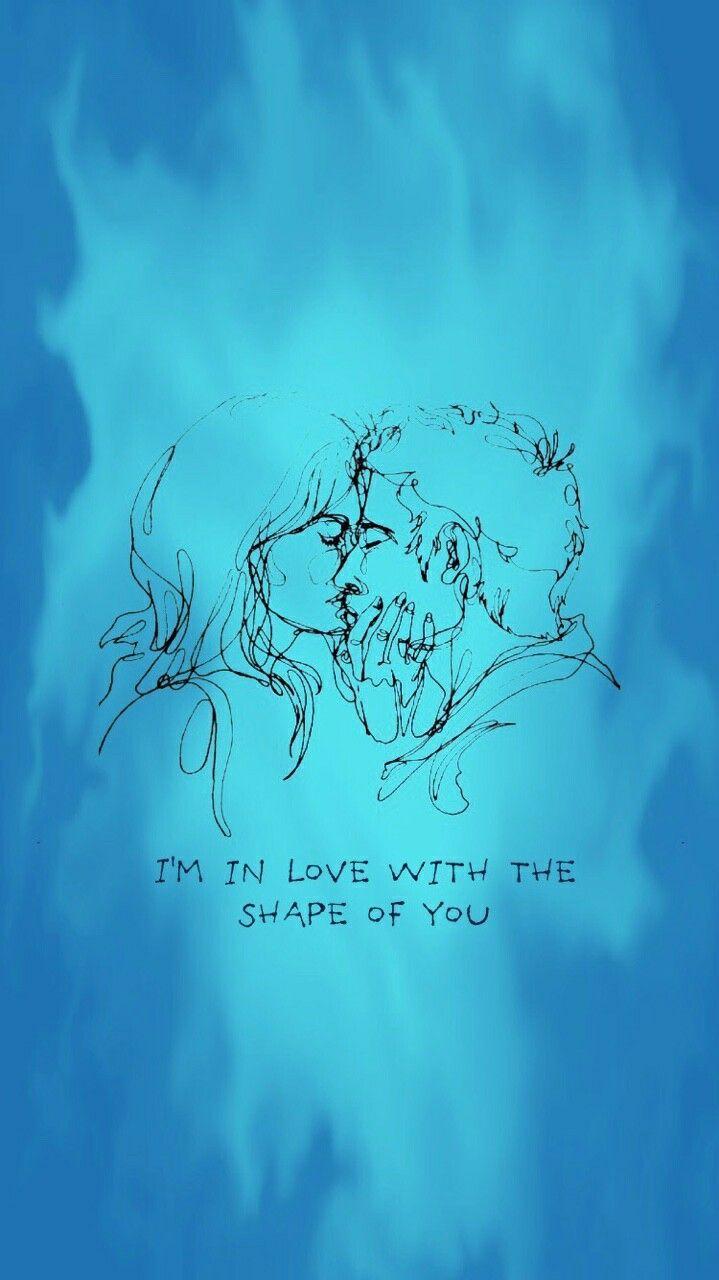 I'M IN LOVE WITH THE
SHAPE OF YOU